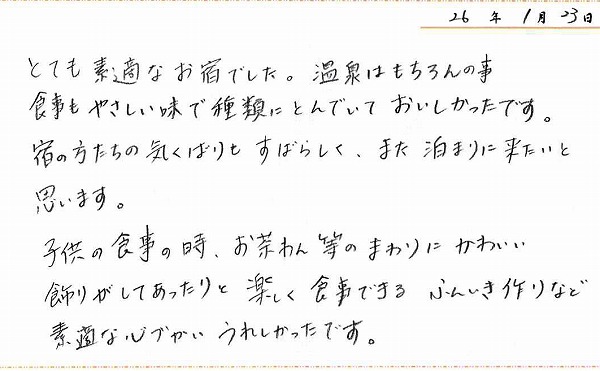 26年1月23日
とても素適なお宿でした。温泉はもちろんの事
食事もやさしい味で種類にとんでいておいしかったです。
宿の方たちの気くばりもすばらしく、また泊まりに来たいと
思います。
子供の食事の時、お茶わん等のまわりにかわいい
飾りがしてあったりと楽しく食事できるふんいき作りなど
素適な心づかいうれしかったです。